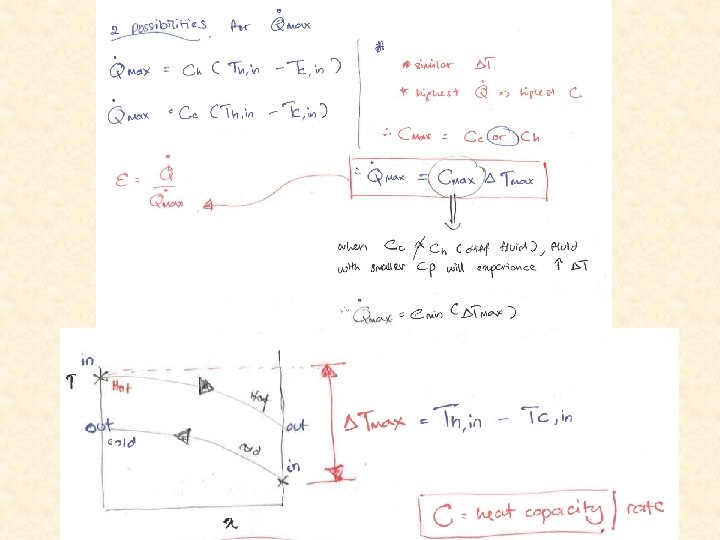 2 possibilities for Q̇max
Q̇max = Ch (Th,in - Tc,in)
Q̇max = Cc (Th,in - Tc,in)
ε = Q̇ / Q̇max
* similar ΔT
* highest Q̇ => highest C
∴ Cmax = Cc or Ch
∴ Q̇max = Cmax ΔTmax
when Cc ≠ Ch (diff fluid), fluid
with smaller Cp will experience ↑ ΔT
∴ Q̇max = Cmin (ΔTmax)
in
T
Hot
Hot
out
out
cold
cold
in
x
ΔTmax = Th,in - Tc,in
C = heat capacity rate